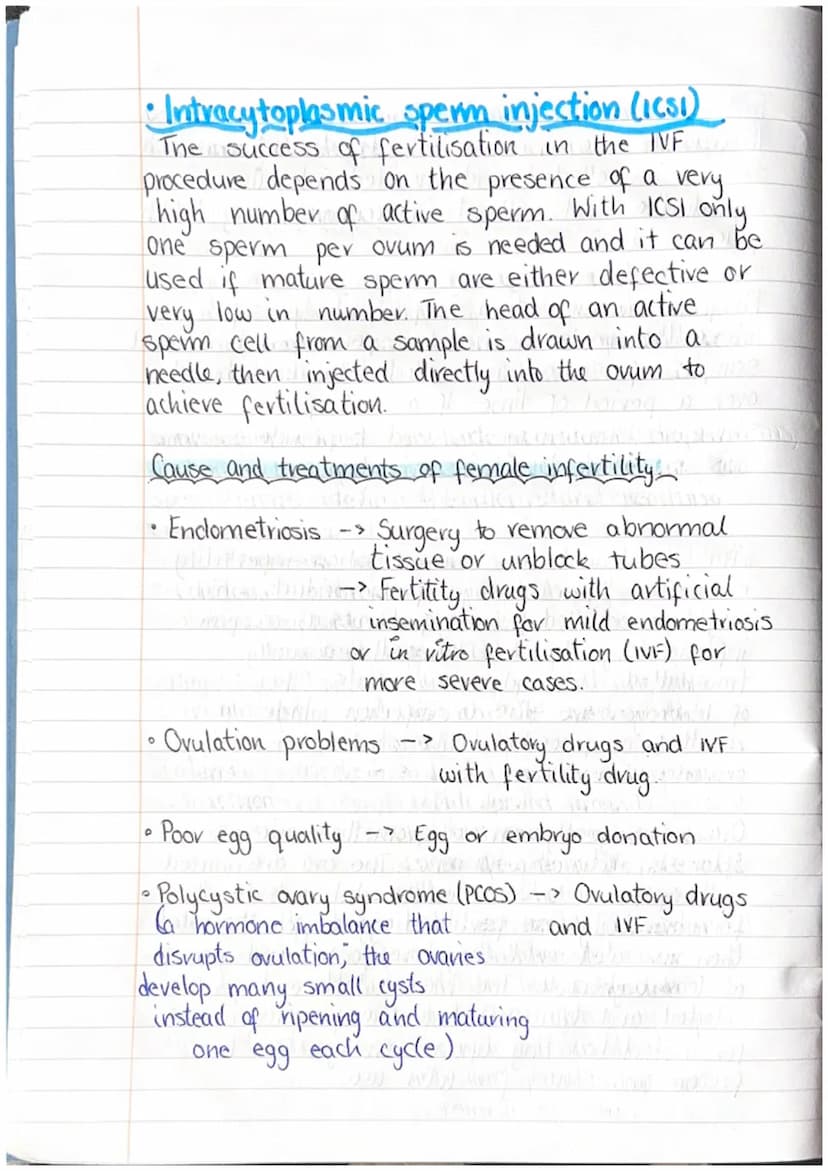 • Intracytoplasmic sperm injection (ICSI)
The success of fertilisation in the IVF
procedure depends on the presence of a very
high number of active sperm. With ICSI only
one sperm per ovum is needed and it can be
used if mature sperm are either defective or
very low in number. The head of an active
sperm cell from a sample is drawn into a
needle, then injected directly into the ovum to
achieve fertilisation.
Cause and treatments of female infertility
• Endometriosis -> Surgery to remove abnormal
tissue or unblock tubes
-> Fertitity drugs with artificial
insemination for mild endometriosis
or in vitro fertilisation (IVF) for
more severe cases.
• Ovulation problems -> Ovulatory drugs and IVF
with fertility drug.
• Poor egg quality -> Egg or embryo donation
• Polycystic ovary syndrome (PCOS) -> Ovulatory drugs
(a hormone imbalance that and IVF
disrupts ovulation; the ovaries
develop many small cysts
instead of ripening and maturing
one egg each cycle)